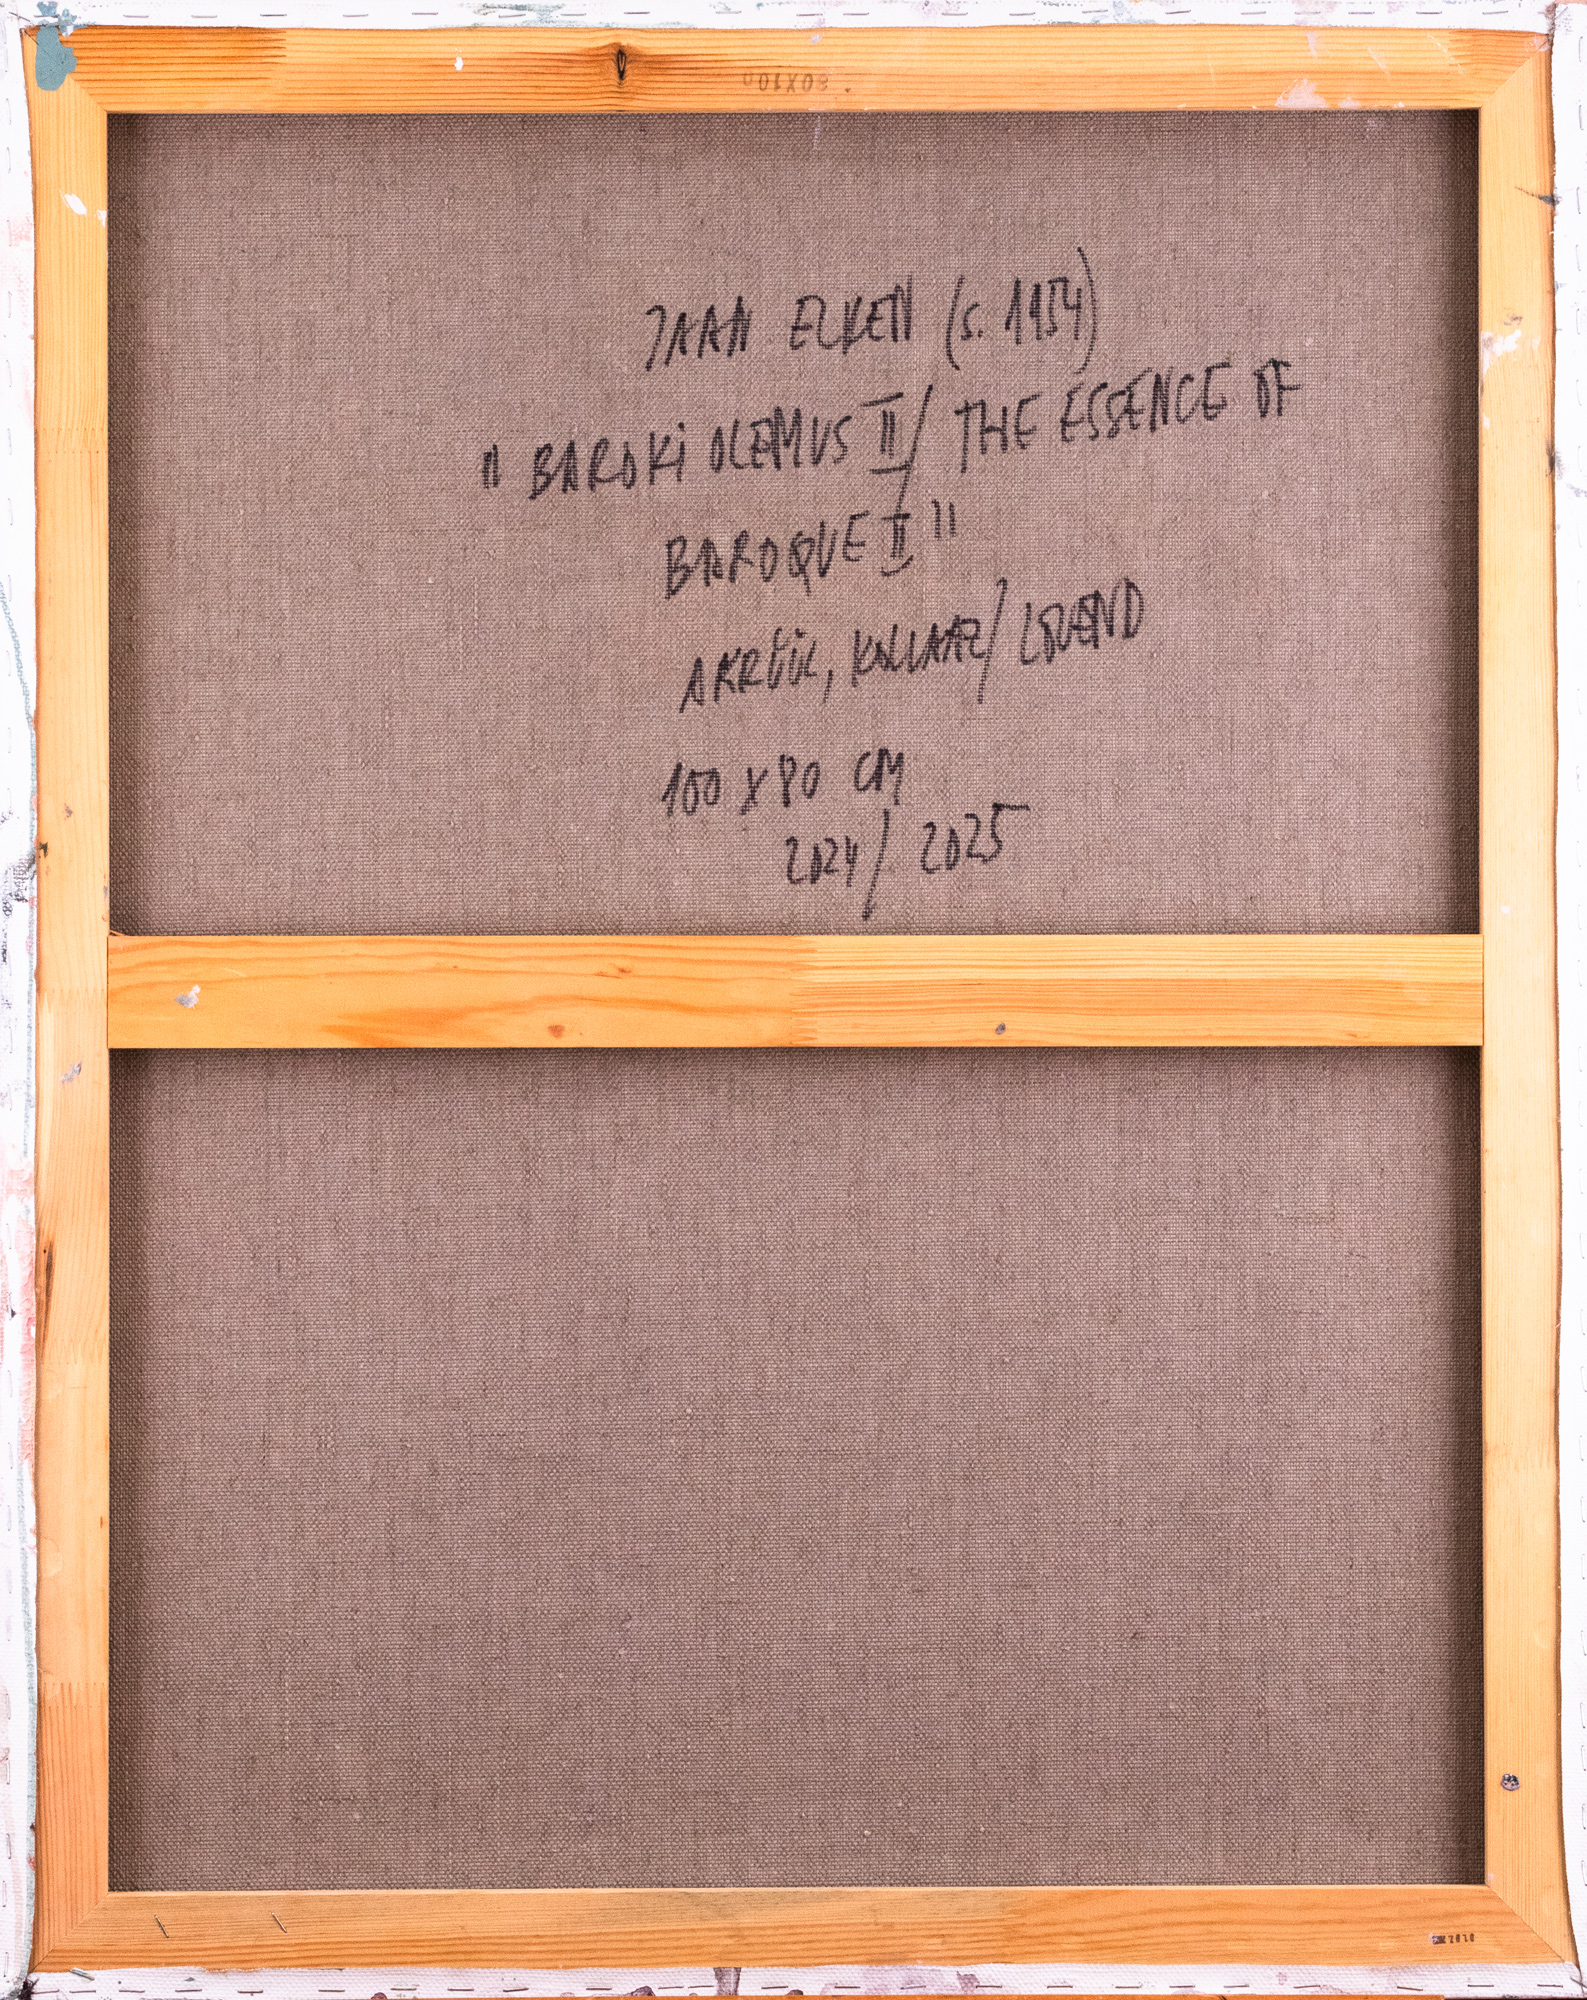 80X100
JAAN ELKEN (S. 1954)
"BAROKi OLEMUS II / THE ESSENCE OF
BAROQUE II"
AKRÜÜL, KOLLAAŽ / LÕUEND
100 X 80 CM
2024 / 2025